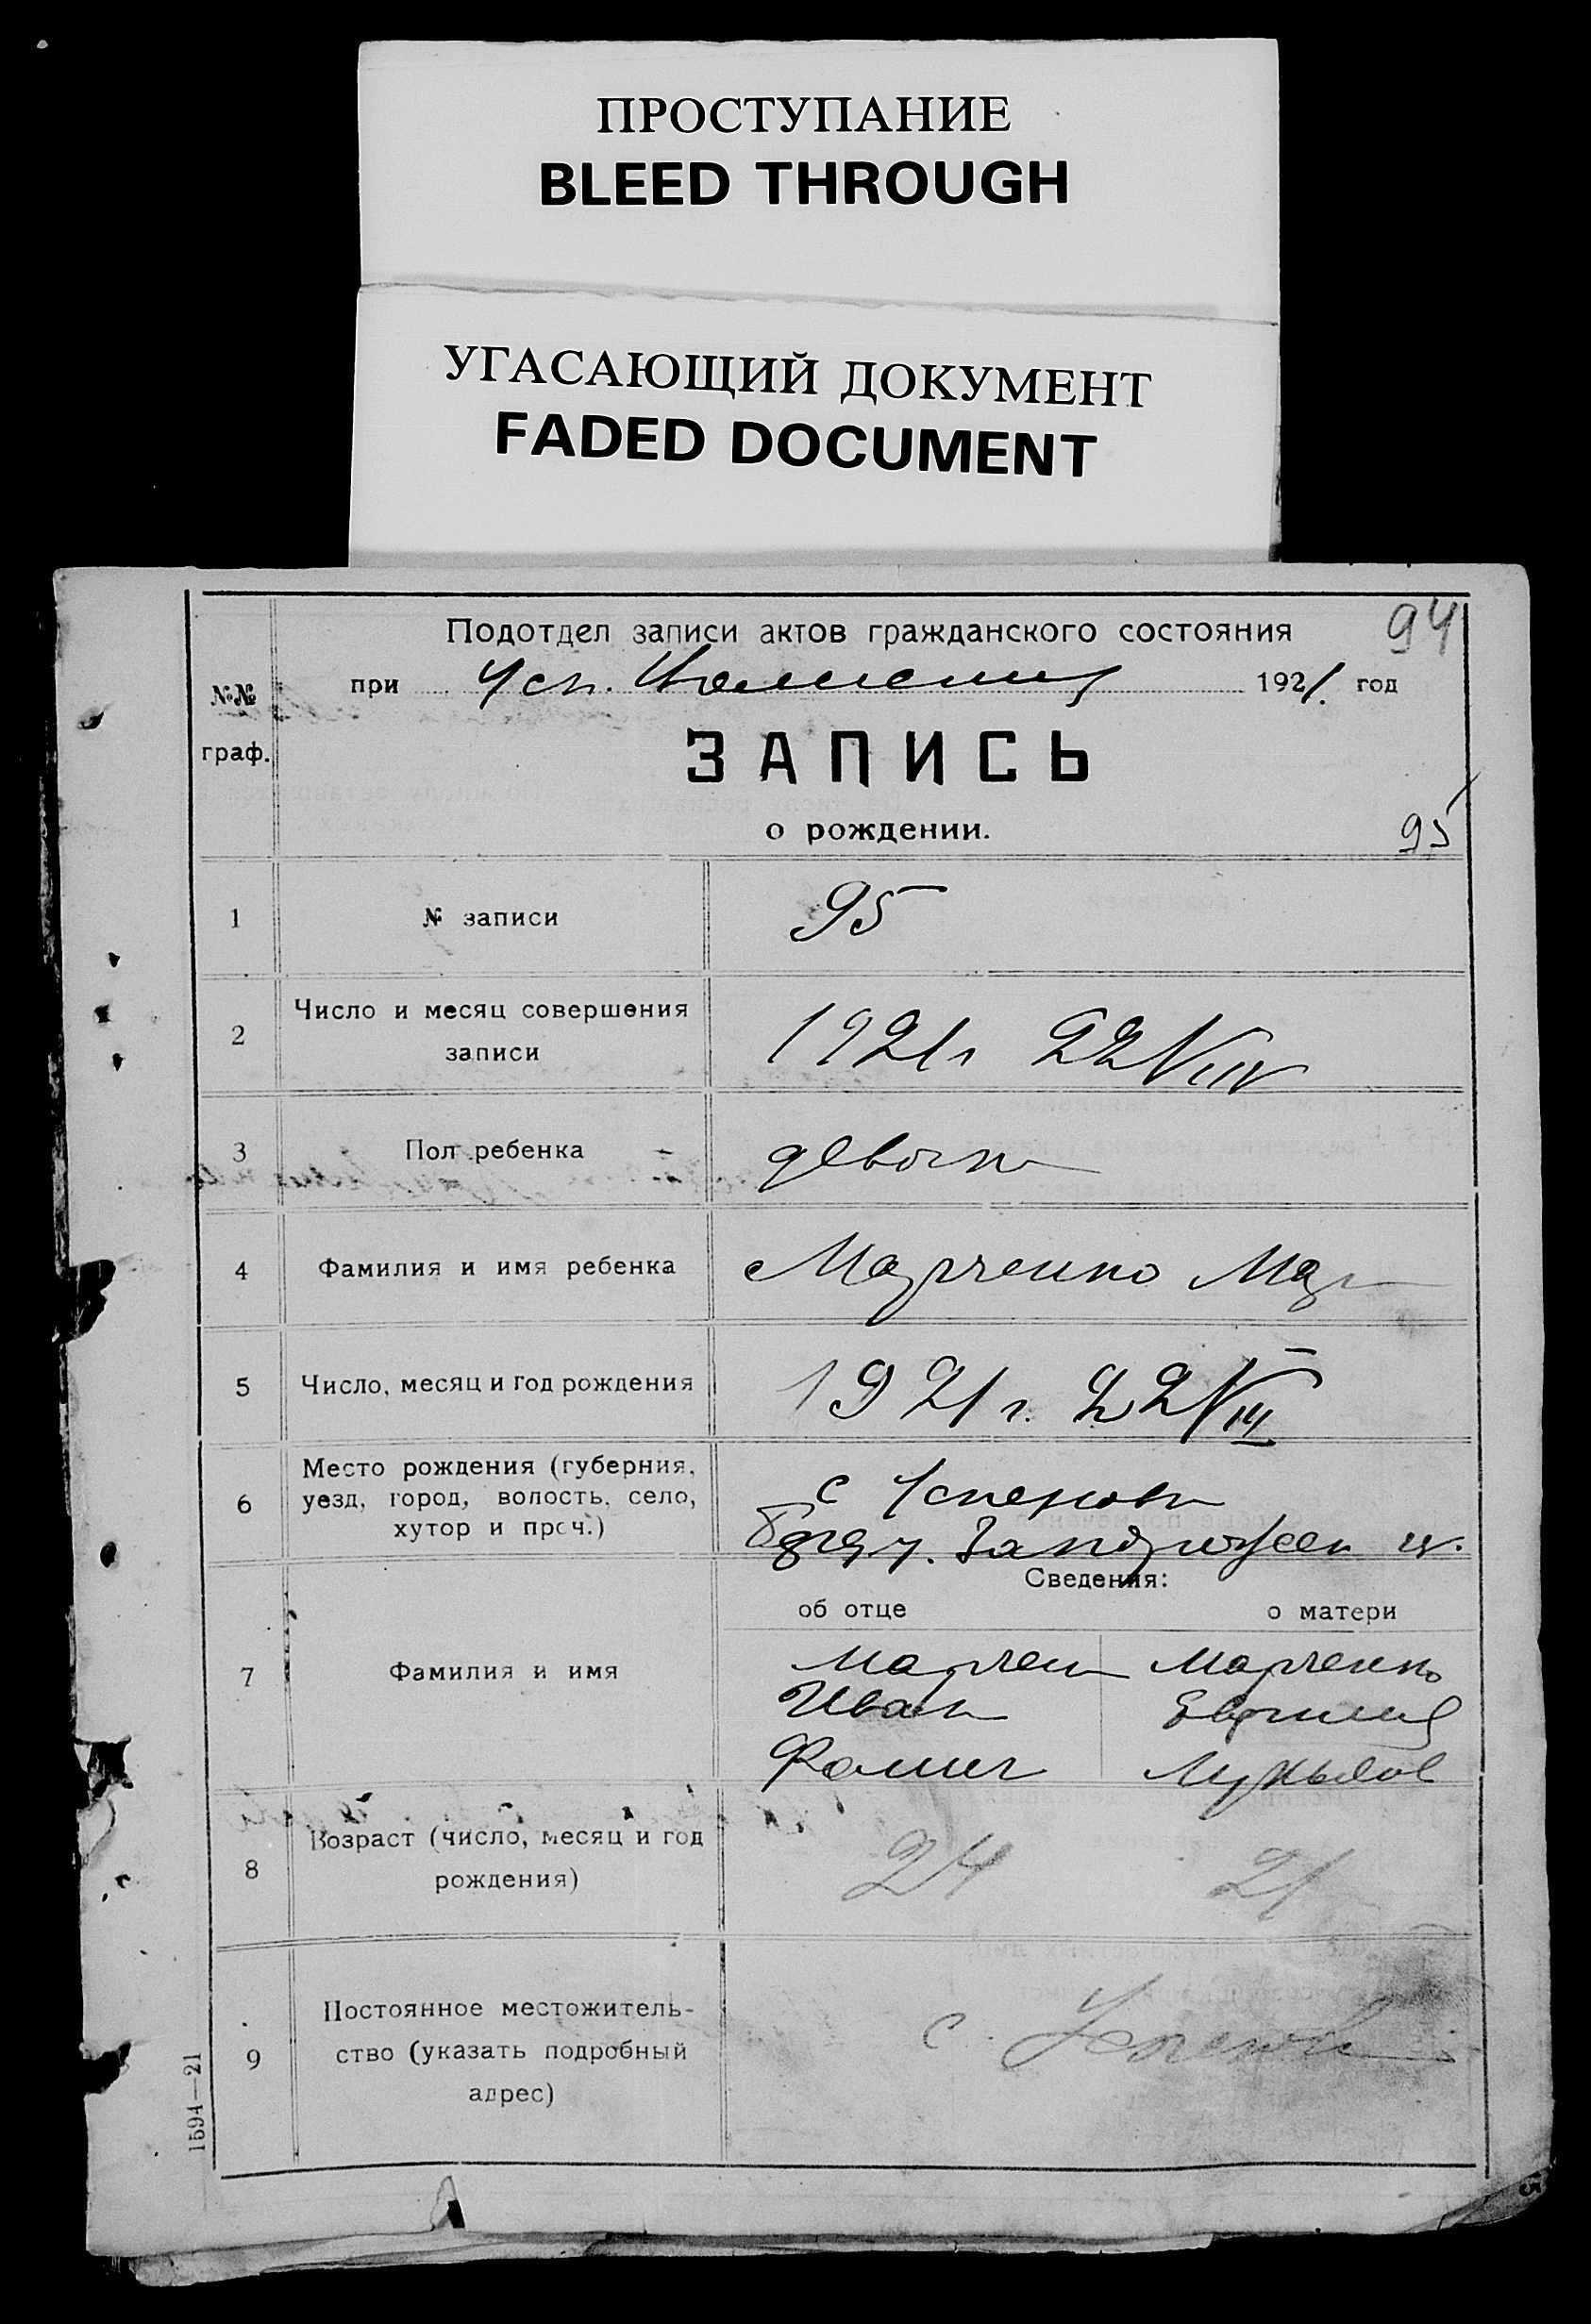 ПРОСТУПАНИЕ
BLEED THROUGH
УГАСАЮЩИЙ ДОКУМЕНТ
FADED DOCUMENT
94
Подотдел записи актов гражданского состояния
при Усп. 1921. год
№№
граф.
ЗАПИСЬ
о рождении.
95
1 № записи 95
2 Число и месяц совершения
записи
1921г 22 VIII
3 Пол ребенка девочк
4 Фамилия и имя ребенка Марченко Мар
5 Число, месяц и год рождения 1921 г. 22 VIII
6 Место рождения (губерния,
уезд, город, волость, село,
хутор и проч.)
с Успенов
у.
Сведения:
об отце о матери
7 Фамилия и имя
Марчен Марченко
Иван
Фомич Лукьянов
8 Возраст (число, месяц и год
рождения)
24 21
9 Постоянное местожитель-
ство (указать подробный
адрес)
с. Успенов
1594—21